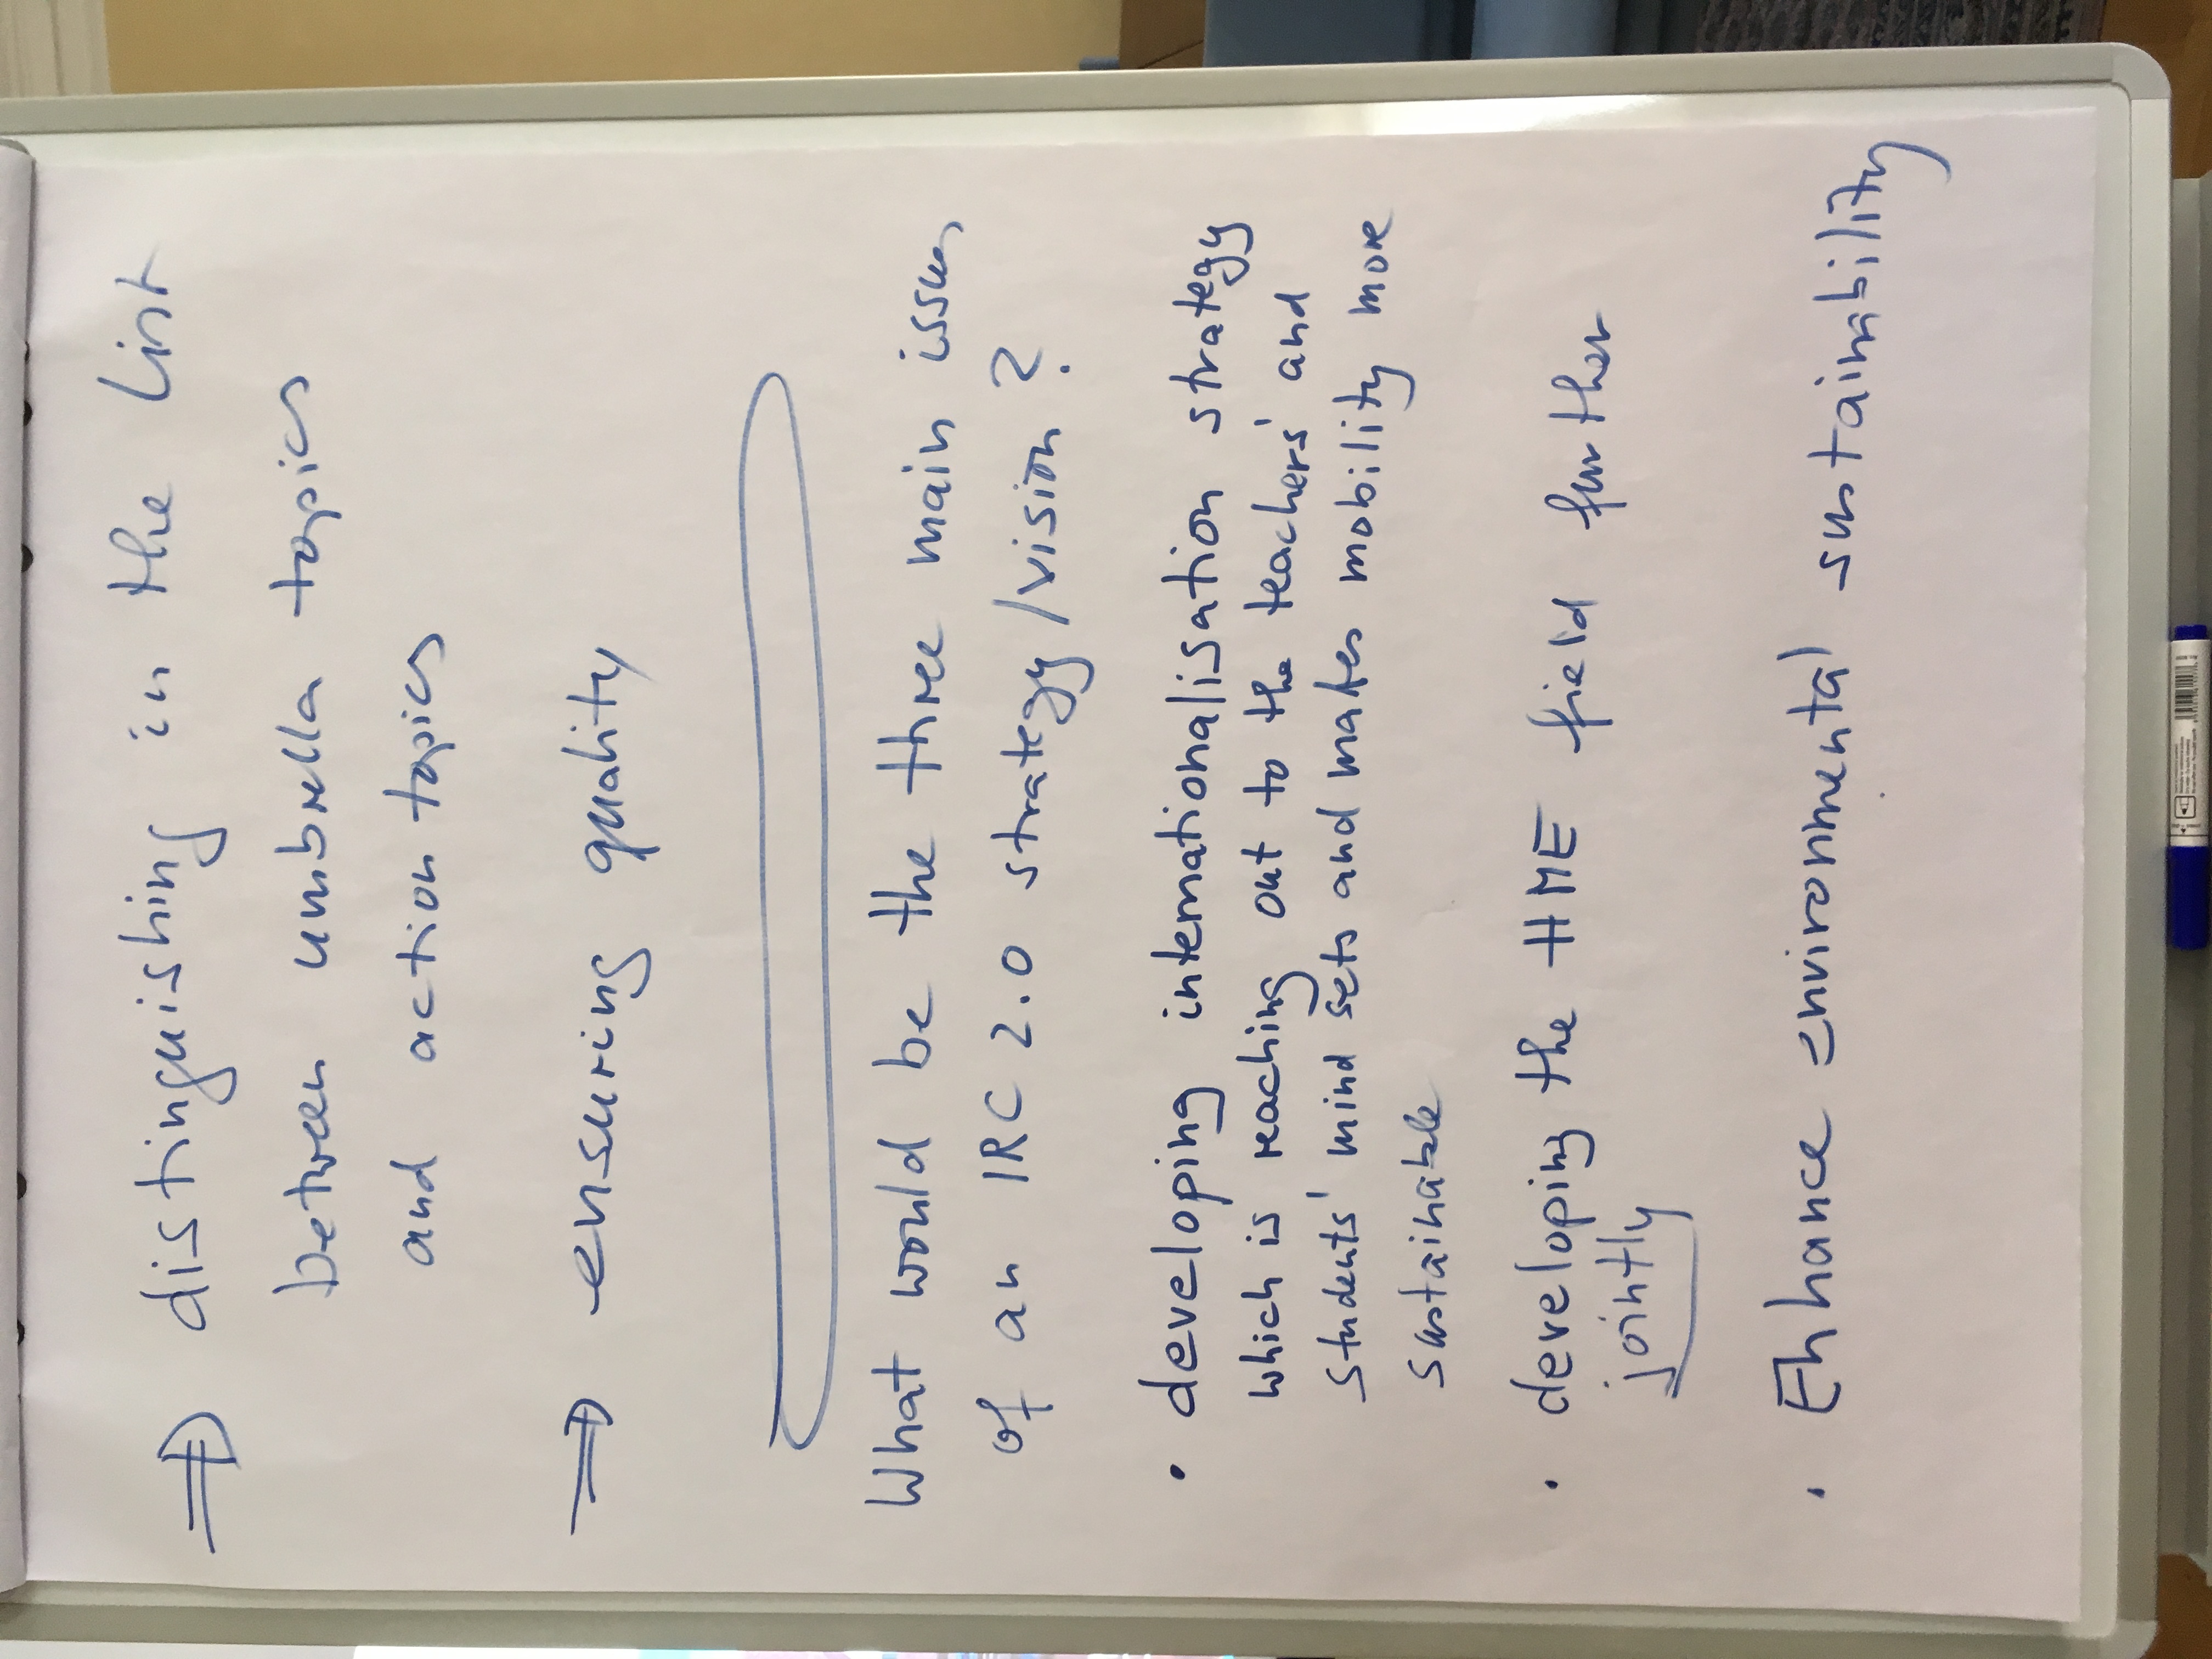 ⇒ distinguishing in the list
between umbrella topics
and action topics
⇒ ensuring quality
What would be the three main issues
of an IRC 2.0 strategy/vision?
• developing internationalisation strategy
which is reaching out to the teachers' and
students' mind sets and makes mobility more
sustainable
• developing the HME field further
jointly
• Enhance environmental sustainability